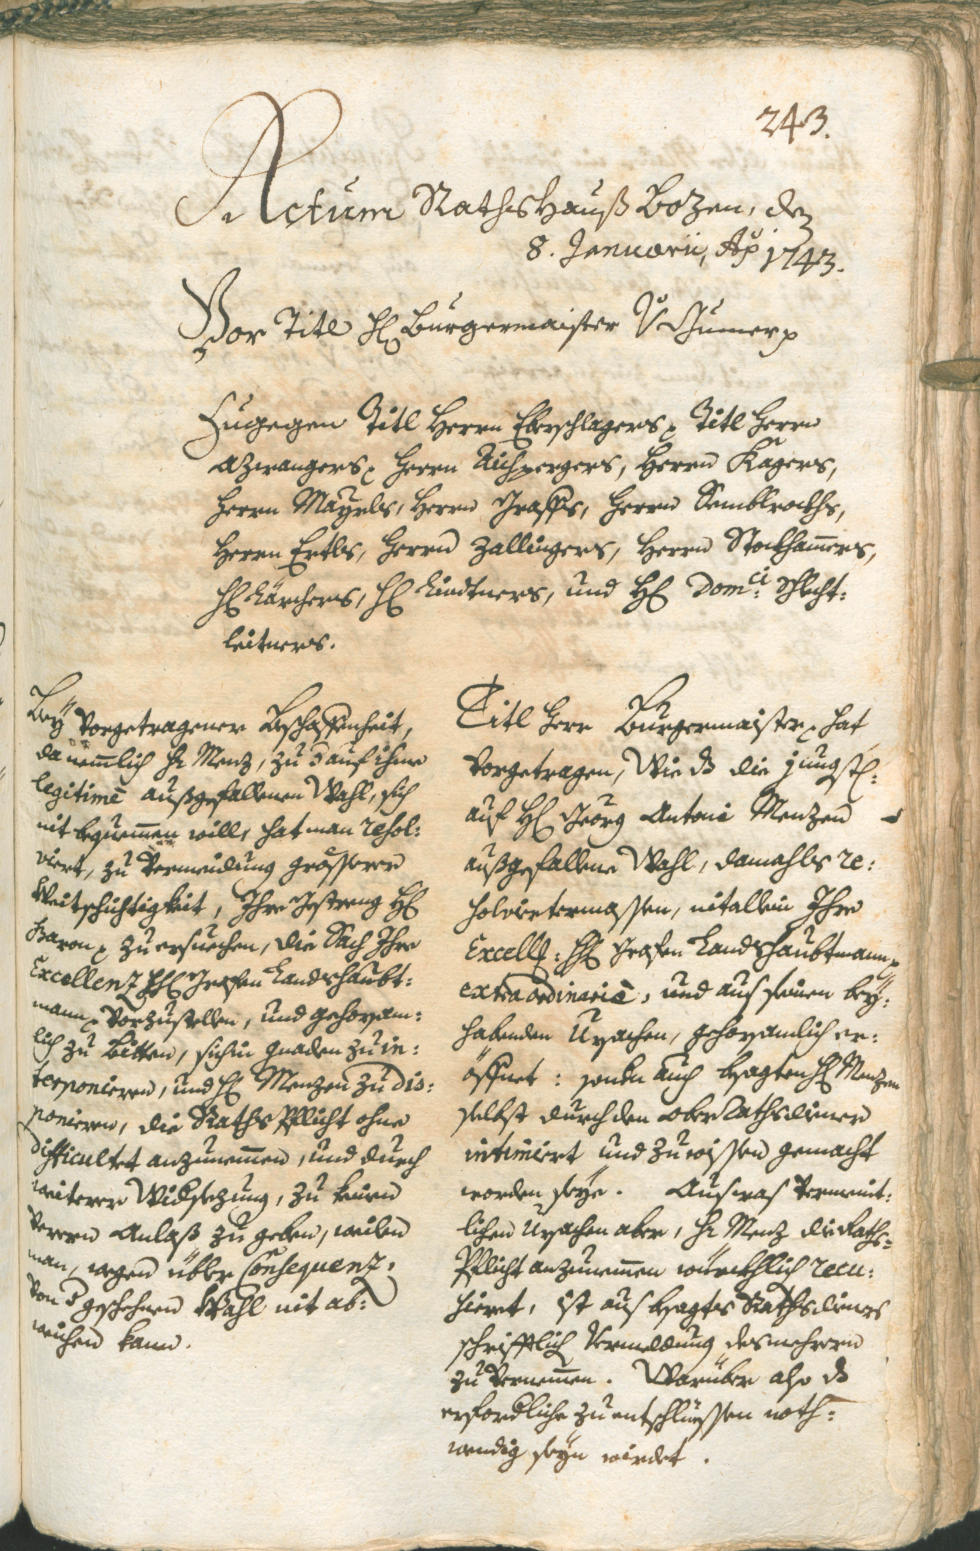 243.
Actum RathsHauß Bozen, den
8. Januarii, Aõ 1743.
Vor Titl H: Burgermaister
Zugegen Titl Herrn Eberschlagers, Titl Herrn
Azwangers, Herrn Aichpergers, Herrn Kagers,
Herrn Mayrls, Herrn Graffs, Herrn Semblrockhs,
Herrn Ertls, Herrn Zallingers, Herrn Stockhamers,
H: Kärchers, H: Lindtners, und H: Dom:ci Schlecht:
leitners.
Bey vorgetragener Beschaffenheit,
da nemmlich H: Menz, zu d auf ihme
legitimè außgefallenen Wahl, sich
nit bequemmen will, hat man resol:
viert, zu Vermeidung grösserer
Weitschichtigkeit, Ihro Gestreng H:
Baron, zu ersuechen, die Sach Ihro
Excellenz H: Grafen Landtshaubt:
mann, vorzustellen, und gehorsam:
lich zu bitten, sich in gnaden zu in:
terponieren, und H: Menzen zu dis:
ponieren, die Raths Pflicht ohne
difficultet anzunemmen, und durch
weitere Widsezung, zu keinen
Anlaß zu geben, weilen
man, wegen übler Consequenz,
von d geschehenen Wahl nit ab:
weichen kann.
Titl Herr Burgermaister, hat
vorgetragen, Wie ds die jüngsth:
auf H: Georg Antoni Menzen
außgefallene Wahl, damahls re:
solviertermassen, nit allein Ihro
Excell: H: Grafen Landtshaubtmann,
extraordinariè, und aus seinen bey:
habenden Ursachen, gehorsamlich er:
öffnet: sondn auch besagten H: Menzen
selbst durch den ober Rathsdienern
intimiert und zu wissen gemacht
worden seye. Aus was vermeint:
lichen Ursachen aber, H: Menz die Raths:
Pflicht anzunemmen würckhlich recu:
siert, ist aus besagtes Rathsdieners
schrifftlich Vermeldung des mehrern
zu vernemmen. Warüber also ds
erfordliche zu entschlüessen noth:
wendig seyn wirdet.